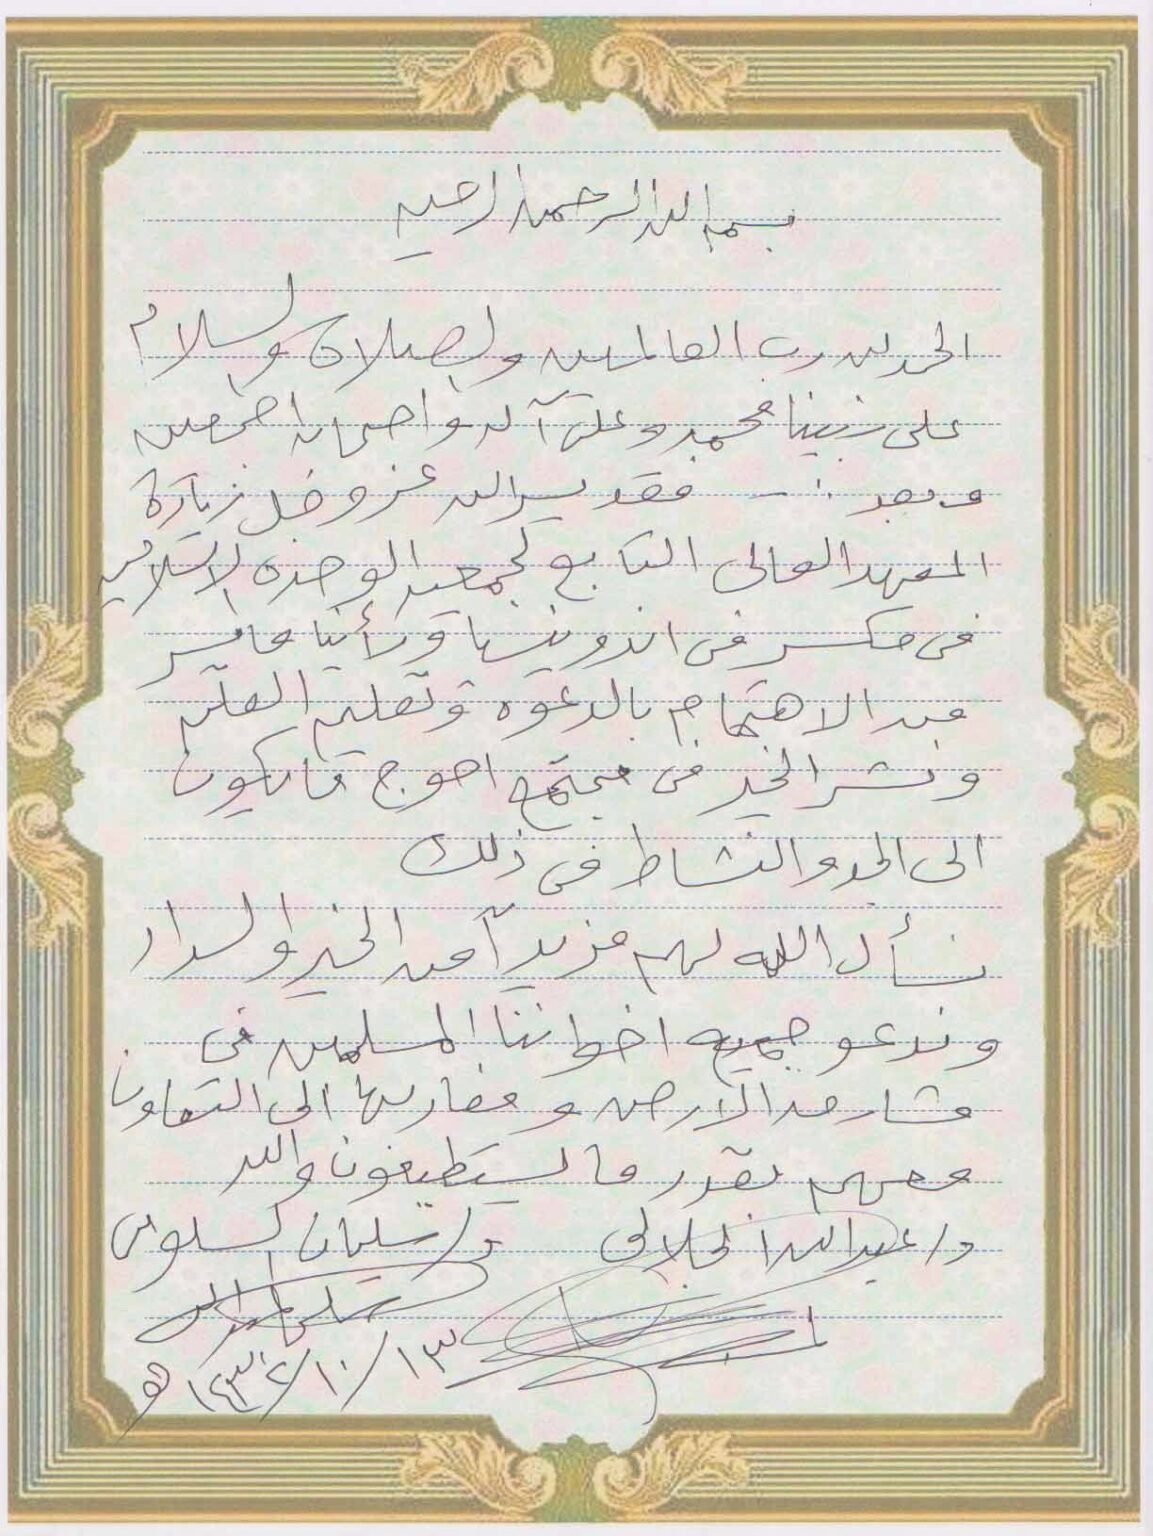 بسم الله الرحمن الرحيم
الحمد لله رب العالمين والصلاة والسلام
على نبينا محمد وعلى آله واصحابه اجمعين
وبعد :- فقد يسر الله عز وجل زيارة
المعهد العالى التابع لجمعية الوحدة الاسلامية
فى مكسر فى اندونيسيا ورأينا ما يسر
من الاهتمام بالدعوة وتعليم العلم
ونشر الخير فى مجتمع احوج ما يكون
الى الجد والنشاط فى ذلك
نسأل الله لهم مزيداً من الخير والسداد
وندعو جميع اخواننا المسلمين فى
مشارق الارض ومغاربها الى التعاون
معهم بقدر ما يستطيعون والله
د/ عبدالله الجلالى د/ سليمان
١٤٣٢/١٠/١٣ هـ